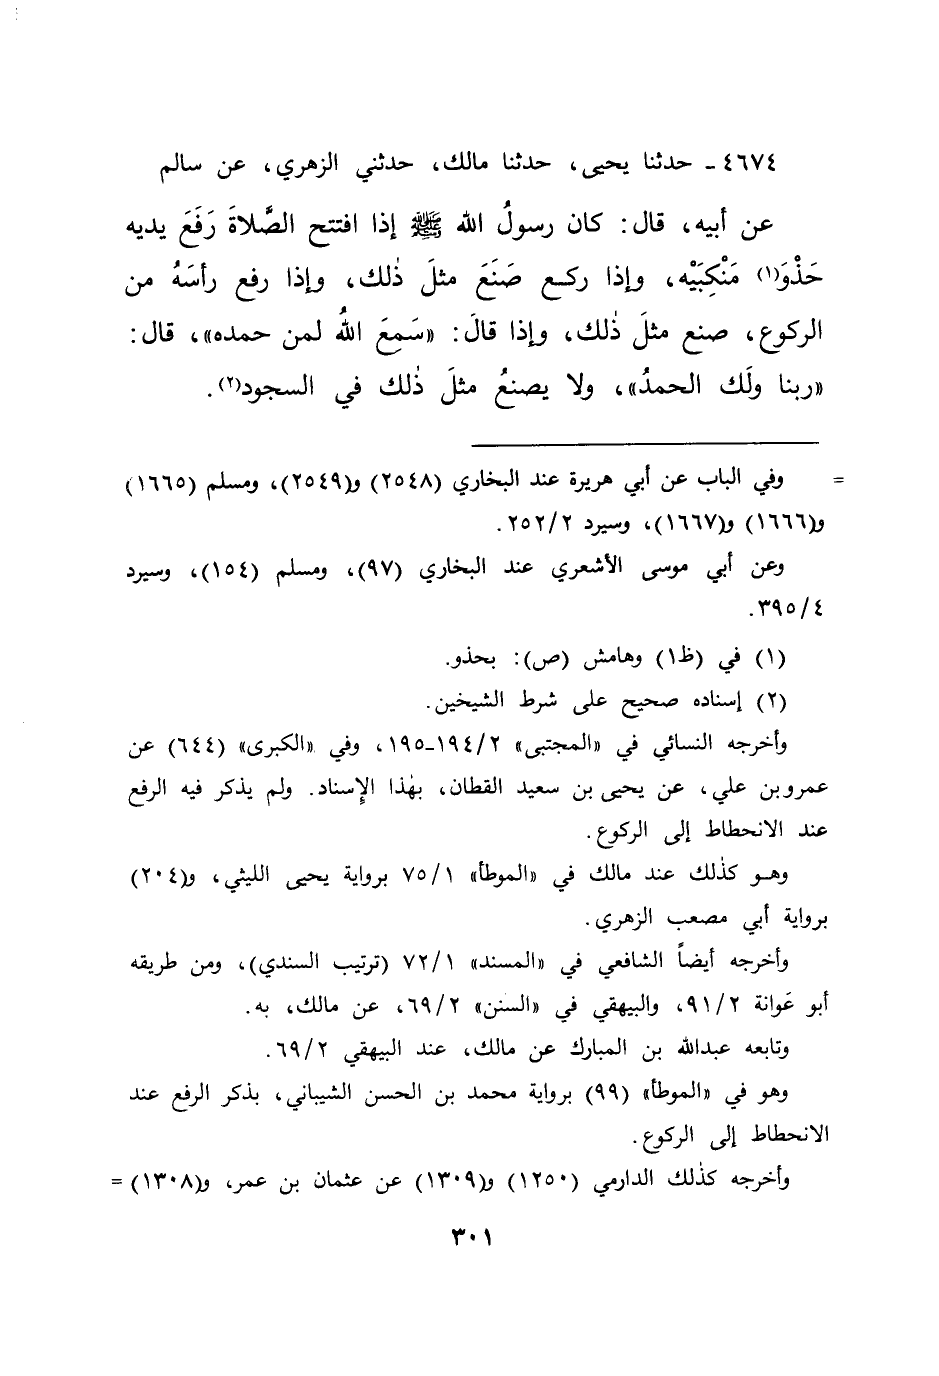 ٤٦٧٤ـ حدثنا يحيى، حدثنا مالك، حدثني الزهري، عن سالم
عن أبيه، قال: كان رسولُ الله ﷺ إذا افتتح الصَّلاةَ رَفَعَ يديه
حَذْوَ(١) مَنْكِبَيْه، وإذا ركع صَنَعَ مثلَ ذٰلك، وإذا رفع رأسَهُ من
الركوع، صنع مثلَ ذٰلك، وإذا قالَ: «سَمِعَ اللهُ لمن حمده»، قال:
«ربنا ولَك الحمدُ»، ولا يصنعُ مثلَ ذٰلك في السجود(٢).
= وفي الباب عن أبي هريرة عند البخاري (٢٥٤٨) و(٢٥٤٩)، ومسلم (١٦٦٥)
و(١٦٦٦) و(١٦٦٧)، وسيرد ٢٥٢/٢.
وعن أبي موسى الأشعري عند البخاري (٩٧)، ومسلم (١٥٤)، وسيرد
٣٩٥/٤.
(١) في (ظ١) وهامش (ص): بحذو.
(٢) إسناده صحيح على شرط الشيخين.
وأخرجه النسائي في «المجتبى» ١٩٤/٢-١٩٥، وفي «الكبرى» (٦٤٤) عن
عمرو بن علي، عن يحيى بن سعيد القطان، بهٰذا الإسناد. ولم يذكر فيه الرفع
عند الانحطاط إلى الركوع.
وهو كذٰلك عند مالك في «الموطأ» ٧٥/١ برواية يحيى الليثي، و(٢٠٤)
برواية أبي مصعب الزهري.
وأخرجه أيضاً الشافعي في «المسند» ٧٢/١ (ترتيب السندي)، ومن طريقه
أبو عَوانة ٩١/٢، والبيهقي في «السنن» ٦٩/٢، عن مالك، به.
وتابعه عبدالله بن المبارك عن مالك، عند البيهقي ٦٩/٢.
وهو في «الموطأ» (٩٩) برواية محمد بن الحسن الشيباني، بذكر الرفع عند
الانحطاط إلى الركوع.
وأخرجه كذٰلك الدارمي (١٢٥٠) و(١٣٠٩) عن عثمان بن عمر، و(١٣٠٨) =
٣٠١